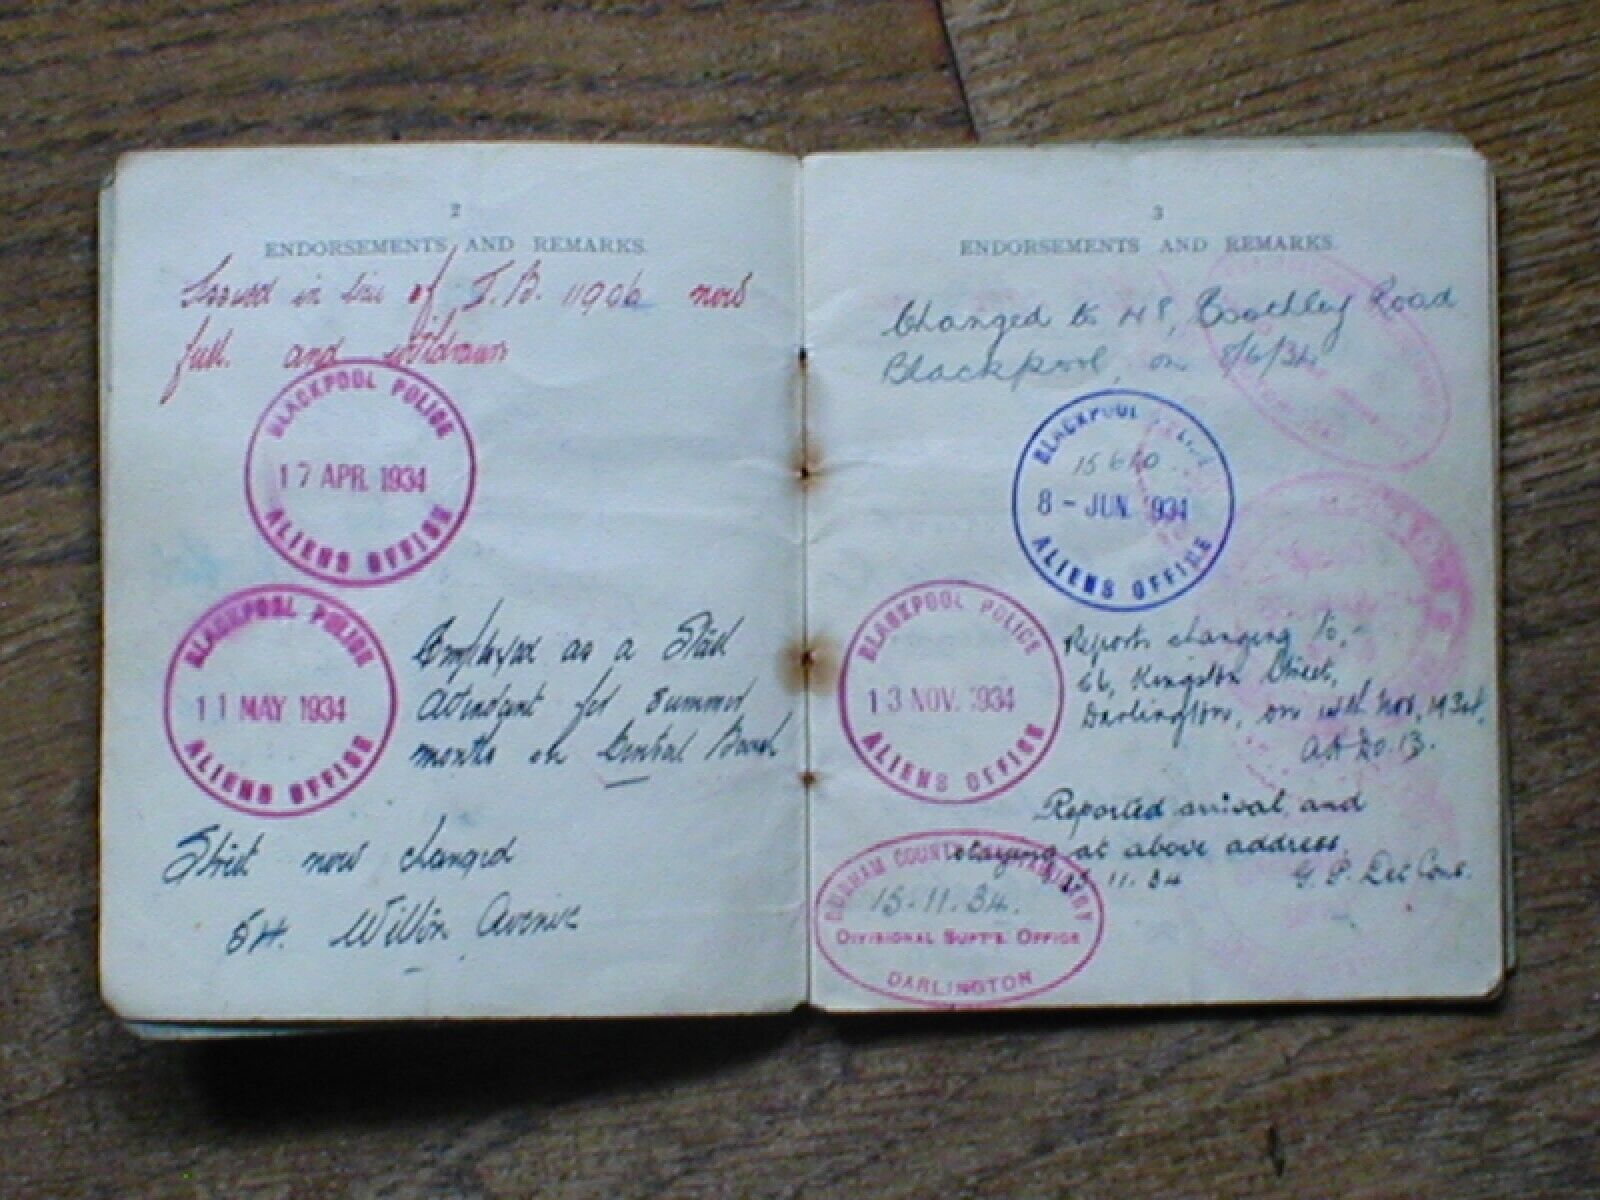 2
ENDORSEMENTS AND REMARKS.
Issued in lieu of I.B. 11906 now
full and withdrawn
BLACKPOOL POLICE
17 APR. 1934
ALIENS OFFICE
BLACKPOOL POLICE
11 MAY 1934
ALIENS OFFICE
Employed as a Stall
Attendant for Summer
months on Central Beach
Street now changed
54. Avenue
3
ENDORSEMENTS AND REMARKS.
Changed to 48, Road
Blackpool, on 8/6/34
BLACKPOOL POLICE
15640
8 - JUN. 1934
ALIENS OFFICE
BLACKPOOL POLICE
13 NOV. 1934
ALIENS OFFICE
Reports changing to,-
66, Kingston Street,
Darlington, on 14th Nov, 1934.
Reported arrival and
staying at above address.
11.34
DURHAM COUNTY CONSTABULARY
15.11.34.
DIVISIONAL SUPT'S. OFFICE
DARLINGTON